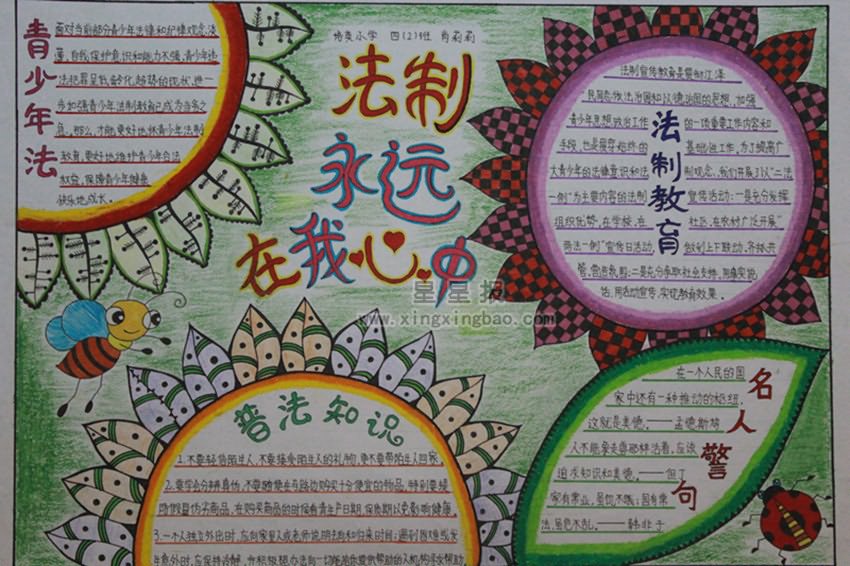 培英小学 四(2)班 肖莉莉
法制
永远
在我心中
青少年法
面对当前部分青少年法律和护律观念淡
薄,自我保护意识和能力不强,青少年违
法犯罪呈低龄化趋势的现状,进一
步加强青少年法制教育已成为当务之
急,那么,才能更好地抓青少年法制
教育,更好地维护青少年合法
权益,保障青少年健康
快乐地成长。
法制教育
法制宣传教育是贯彻江泽
民同志依法治国和以德治国的思想,加强
青少年思想政治工作的一项重要工作内容和
手段,也是普法始终的基础性工作,为了提高广
大青少年的法律意识和法制观念,我们开展了以“二法
一例”为主要内容的法制宣传活动:一是充分发挥
组织优势,在学校,在社区,在农村广泛开展“
两法一例”宣传日活动,做到上下联动,齐抓共
管,营造氛围;二是充分争取社会支持,用象实施
活,用活动宣传,实现教育效果。
星星报
www.xingxingbao.com
普法知识
1.不要轻信陌生人,不要接受陌生人的礼物,更不要带陌生人回家。
2.要学会分辨真伪,不要随便在马路边购买十分便宜的物品,特别要提
防假冒伪劣商品,在购买商品的时候看清生产日期、保质期以免影响健康。
3.一个人独立外出时,应向家里人或老师说明去向和归来时间;遇到困难或发
生意外时,应保持冷静,并积极想办法向一切能给你提供帮助的人和机构寻求帮助
名人警句
在一个人民的国
家中还有一种推动的枢纽,
这就是美德。——孟德斯鸠
人不能象走兽那样活着,应该
追求知识和美德。——但丁
家有常业,虽饥不饿;国有常
法,虽危不乱。——韩非子